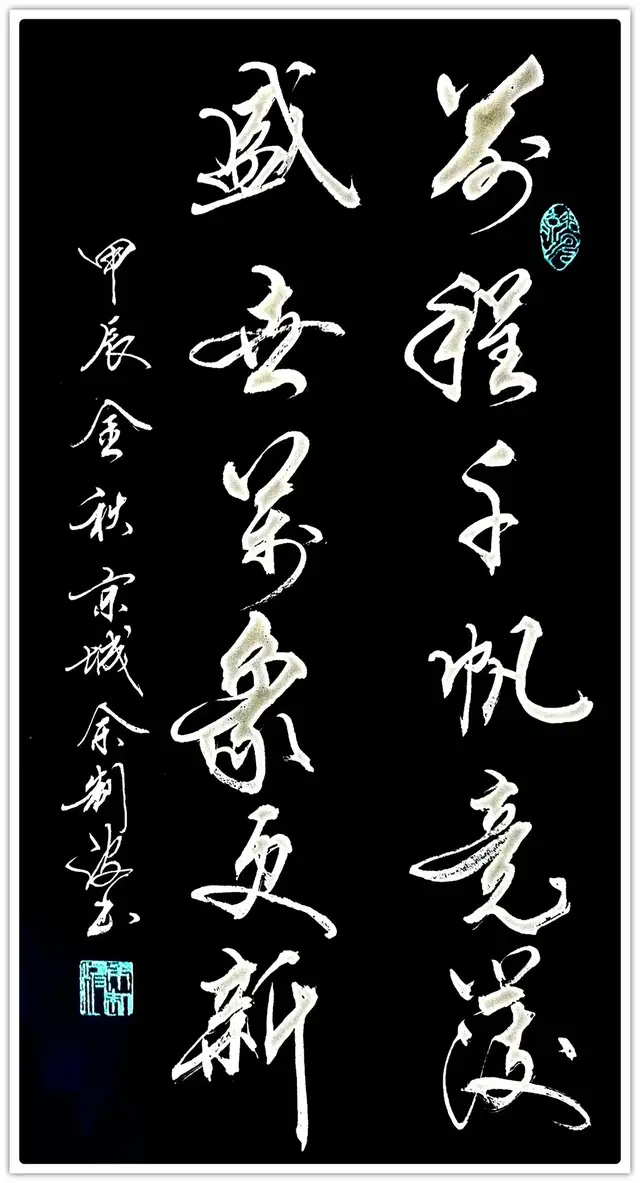 前程千帆竞發
盛世萬象更新
甲辰金秋京城余制波书